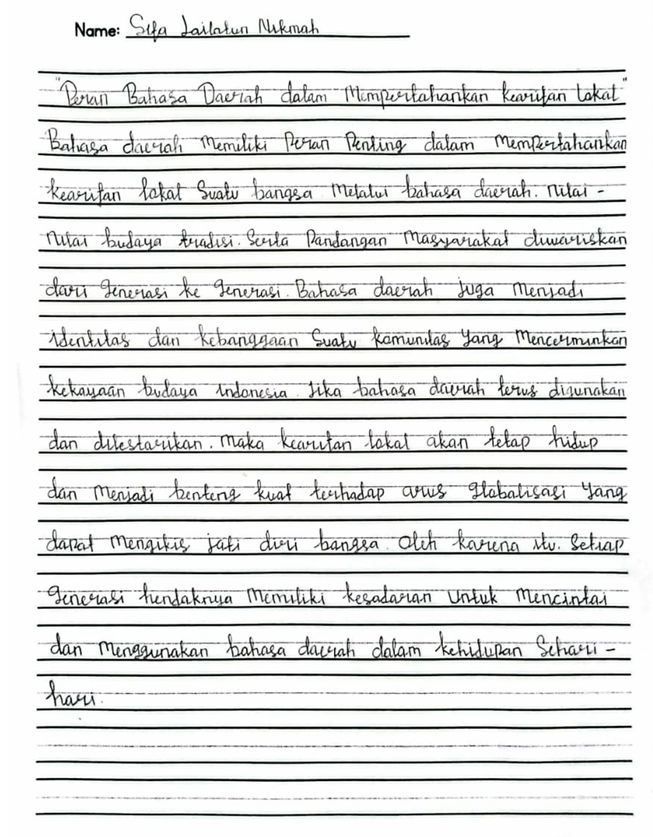 Name: Sifa Lailatun Nikmah
"Peran Bahasa Daerah dalam Mempertahankan kearifan Lokal"
Bahasa daerah Memiliki Peran Penting dalam Mempertahankan
kearifan lokal Suatu bangsa Melalui bahasa daerah. Nilai -
nilai budaya tradisi. Serta Pandangan Masyarakat diwariskan
dari generasi ke generasi. Bahasa daerah juga Menjadi
identitas dan kebanggaan Suatu komunitas Yang Mencerminkan
kekayaan budaya indonesia. Jika bahasa daerah terus digunakan
dan dilestarikan. Maka kearifan lokal akan tetap hidup
dan Menjadi benteng kuat terhadap arus globalisasi Yang
dapat Mengikis jati diri bangsa. Oleh karena itu. Setiap
generasi hendaknya Memiliki kesadaran Untuk Mencintai
dan Menggunakan bahasa daerah dalam kehidupan Sehari -
hari.